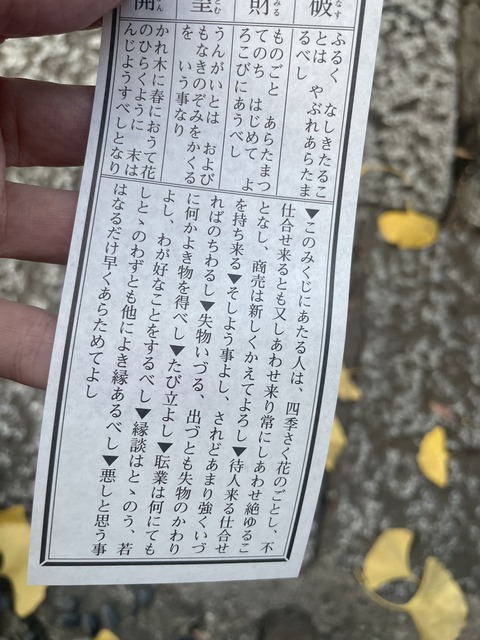 破なす
ふるく なしきたるこ
とは やぶれあらたま
るべし
財みる
ものごと あらたまつ
てのち はじめて よ
ろこびにあうべし
うんがいとは および
もなきのぞみをかくる
を いう事なり
開
かれ木に春におうて花
のひらくように 末は
んじようすべしとなり
▼このみくじにあたる人は、四季さく花のごとし、不
仕合せ来るとも又しあわせ来り常にしあわせ絶ゆるこ
となし、商売は新しくかえてよろし▼待人来る仕合せ
を持ち来る▼そしよう事よし、されどあまり強くいづ
ればのちわるし▼失物いづる、出づとも失物のかわり
に何かよき物を得べし▼たび立よし▼転業は何にても
よし、わが好なことをするべし▼縁談はとゝのう、若
しとゝのわずとも他によき縁あるべし▼悪しと思う事
はなるだけ早くあらためてよし